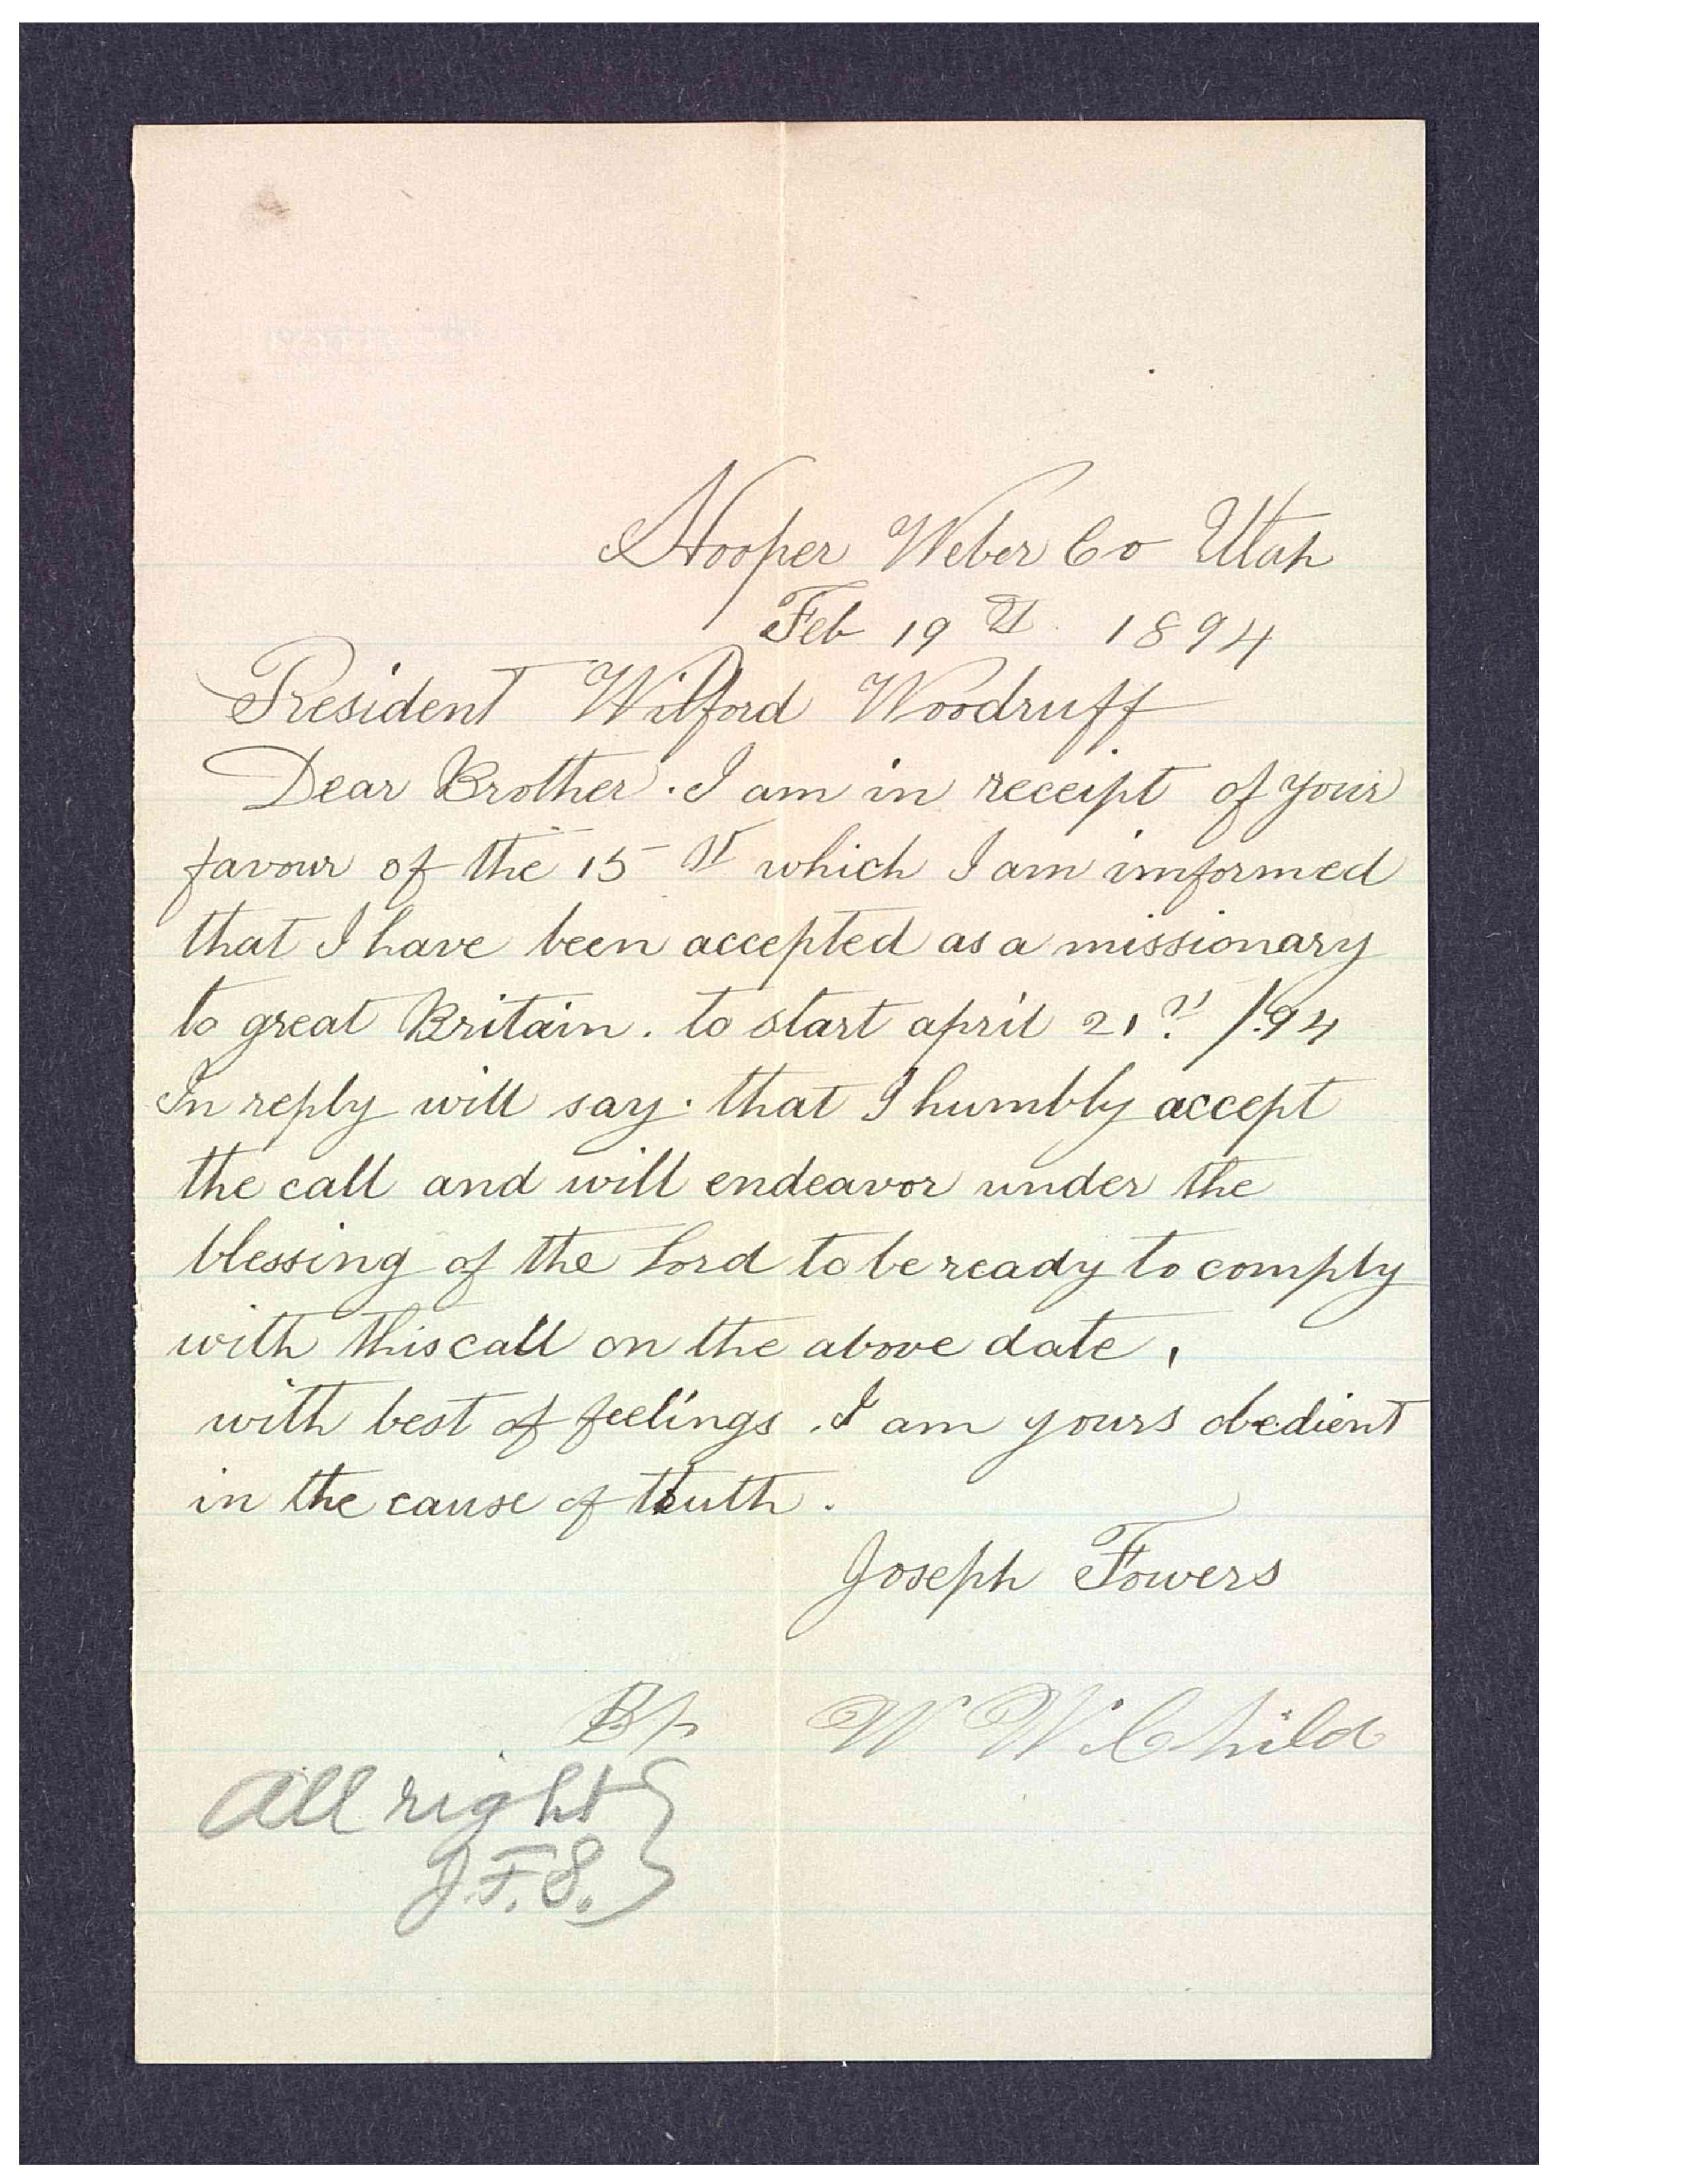 Hooper Weber Co Utah
Feb 19th 1894
President Wilford Woodruff
Dear Brother. I am in receipt of your
favour of the 15 st which I am imformed
that I have been accepted as a missionary
to great Britain. to start april 21st /94
In reply will say. that I humbly accept
the call and will endeavor under the
blessing of the Lord to be ready to comply
with this call on the above date,
with best of feelings. I am yours obedient
in the cause of truth.
Joseph Fowers
Bp W W Child
All right
J.F.S.